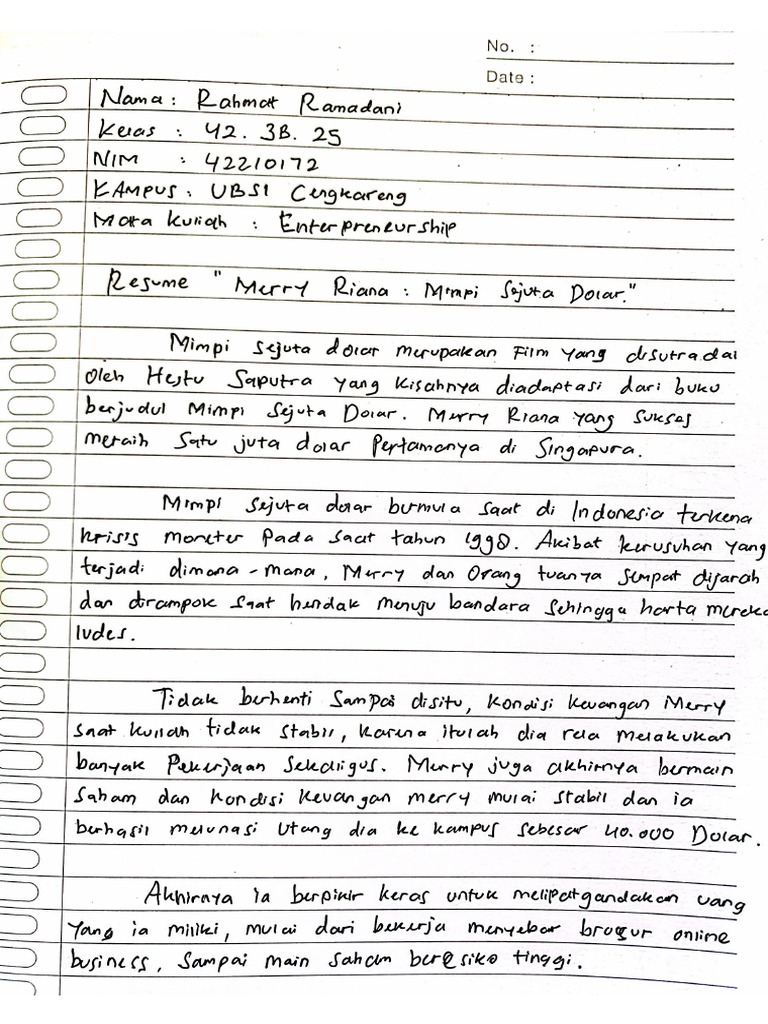 No. :
Date :
Nama : Rahmat Ramadani
Kelas : 42. 3B. 25
NIM : 42210172
KAMPUS : UBSI Cengkareng
Mata kuliah : Enterpreneurship
Resume " Merry Riana : Mimpi Sejuta Dolar."
Mimpi sejuta dolar merupakan Film yang disutradai
oleh Hestu Saputra yang kisahnya diadaptasi dari buku
berjudul Mimpi Sejuta Dolar. Merry Riana yang sukses
meraih satu juta dolar Pertamanya di Singapura.
Mimpi sejuta dolar bermula saat di Indonesia terkena
krisis moneter pada saat tahun 1998. Akibat kerusuhan yang
terjadi dimana-mana, Merry dan Orang tuanya sempat dijarah
dan dirampok saat hendak menuju bandara sehingga harta mereka
ludes.
Tidak berhenti sampai disitu, kondisi keuangan Merry
saat kuliah tidak stabil, karena itulah dia rela melakukan
banyak Pekerjaan sekaligus. Merry juga akhirnya bermain
saham dan kondisi keuangan merry mulai stabil dan ia
berhasil melunasi utang dia ke kampus sebesar 40.000 Dolar.
Akhirnya ia berpikir keras untuk melipatgandakan uang
yang ia miliki, mulai dari bekerja menyebar brosur online
business, sampai main saham beresiko tinggi.